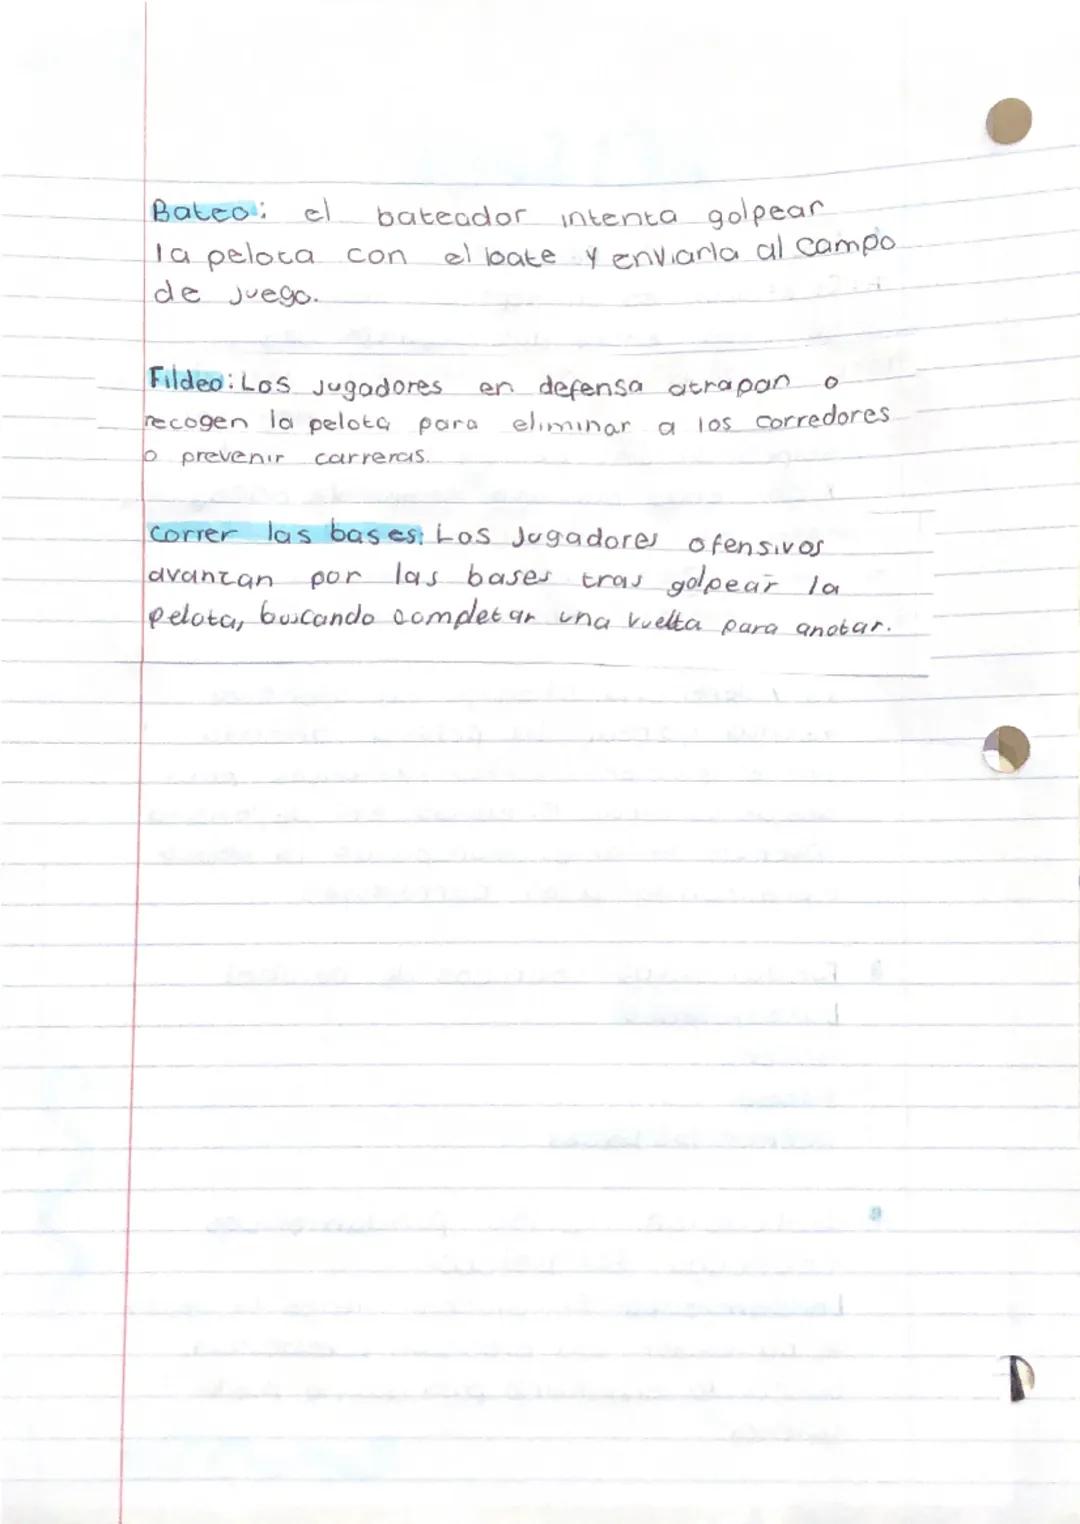 Bateo: el bateador intenta golpear
la pelota con el bate y enviarla al campo
de juego.
Fildeo: Los jugadores en defensa atrapan o
recogen la pelota para eliminar a los corredores
o prevenir carreras.
Correr las bases: Los Jugadores ofensivos
avanzan por las bases tras golpear la
pelota, buscando completar una vuelta para anotar.